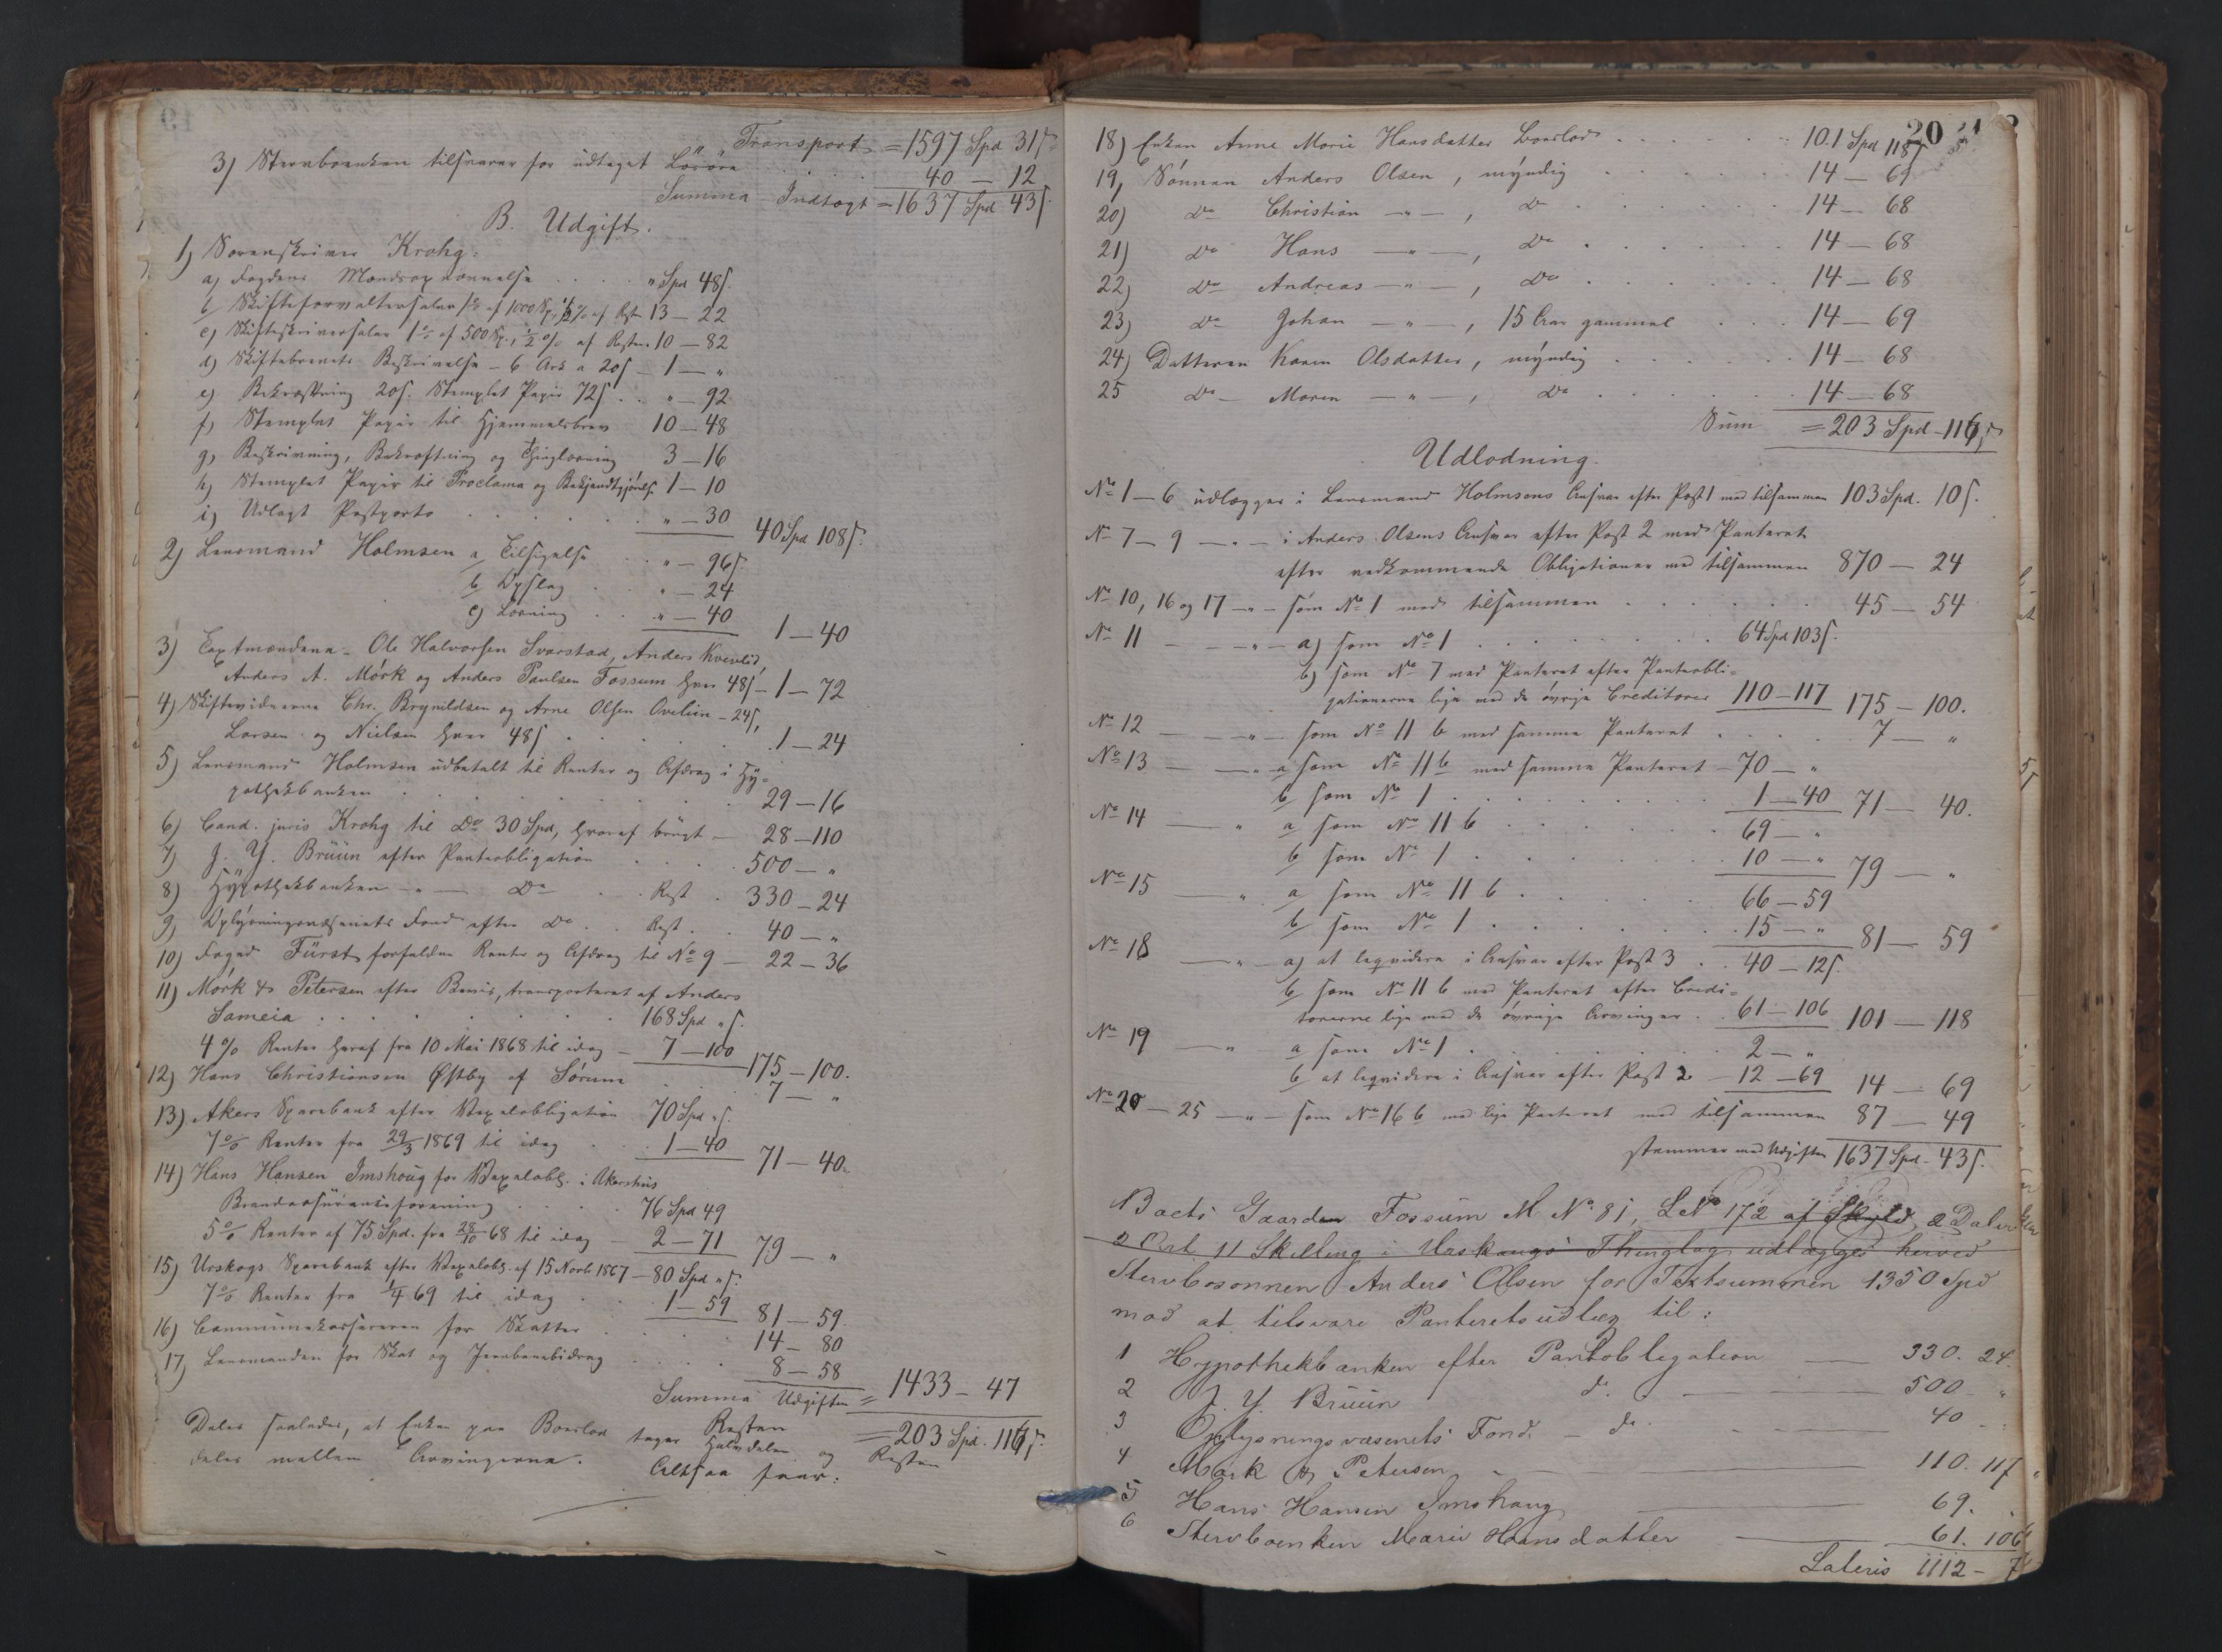 Transport = 1597 Spd 31ſ
3) Stervboenken tilsvarer for udtaget Lösöre . . . 40 — 12
Summa Indtægt = 1637 Spd 43ſ.
B. Udgift.
1) Sorenskriver Krohg:
a) Fogdens Mandsopnævnelse . . . . " Spd 48ſ.
b/ Skifteforvaltersalær 1% af 1000 Sp, ½% af Rest 13 — 22
c) Skifteskriversalær 1% af 500 Sp., ½% af Resten 10 — 82
d) Skiftebrevets Beskrivelse – 6 Ark a 20ſ — 1 — "
e) Bekræftning 20ſ. Stemplet Papir 72ſ . . " — 92
f) Stemplet Papir til Hjemmelsbrev 10 — 48
g) Beskrivning, Bekræftning og Thinglæsning 3 — 16
h) Stemplet Papir til Proclama og Bekjendtgjörelse 1 — 10
i) Udlagt Postporto . . . . . " — 30 40 Spd 108ſ.
2) Lensmand Holmsen a, Tilsigelse . . " — 96ſ.
b Opslag . . " — 24
c) Læsning . . " — 40 1 — 40
3) Taxtmændene – Ole Halvorsen Svarstad, Anders Kvevlid,
Anders A. Mörk og Anders Paulsen Fossum hver 48ſ – 1 — 72
4) Skiftevidnerne Chr. Brynildsen og Arne Olsen – 24ſ,
Larsen og Nielsen hver 48ſ . . . . . 1 — 24
5) Lensmand Holmsen udbetalt til Renter og Afdrag i Hy-
pothekbanken . . . . . . 29 — 16
6) Cand. juris Krohg til Do 30 Spd, hvoraf brugt — 28 — 110
7) J. Y. Brüün efter Panteobligation . . . . 500 — "
8) Hypothekbanken — " — Do . . Rest . 330 — 24
9) Oplysningsvæsenets Fond efter Do . . Rest . . 40 — "
10) Foged Fürst forfaldne Renter og Afdrag til No 9 — 22 — 36
11) Mörk & Petersen efter Bevis, transporteret af Anders
Sameia . . . . . 168 Spd " ſ.
4% Renter heraf fra 10 Mai 1868 til idag — 7 — 100 175 — 100.
12) Hans Christiansen Østby af Sörum . . . 7 — "
13) Akers Sparebank efter Vexelobligation 70 Spd " ſ.
7% Renter fra 29/3 1869 til idag . . 1 — 40 71 — 40.
14) Hans Hansen Imshoug for Vexelobl. i Akershus
Brandassüranceforening . . . 76 Spd 49
5% Renter af 75 Spd. fra 28/10 68 til idag 2 — 71 79 — "
15) Urskogs Sparebank efter Vexelobl. af 15 Novb 1867 – 80 Spd " ſ.
7% Renter fra ¼ 69 til idag . . 1 — 59 81 — 59.
16) Communekassereren for Skatter . . . 14 — 80
17) Lensmanden for Skat og . . . 8 — 58
Summa Udgifter = 1433 — 47
Resten = 203 Spd. 116ſ.
Deles saaledes, at Enken paa Boeslod tager Halvdelen og Resten
deles mellem Arvingerne. Altsaa faar:
20
18) Enken Anne Marie Hansdatter Boeslod . . . . 101 Spd 118ſ
19) Sönnen Anders Olsen, mÿndig . . . . 14 — 69
20) Do Christian — " — , Do . . . . 14 — 68
21) Do Hans — " — , Do . . . . 14 — 68
22) Do Andreas — " — , Do . . . . 14 — 68
23) Do Johan — " — , 15 Aar gammel . . . 14 — 69
24) Datteren Karen Olsdatter, mÿndig . . . . 14 — 68
25 Do — Maren — " — , Do . . . . 14 — 68
Sum = 203 Spd – 116ſ
Udlodning.
No 1 — 6 udlægges i Lensmand Holmsens Ansvar efter Post 1 med tilsammen 103 Spd. 10ſ.
No 7 — 9 — " — i Anders Olsens Ansvar efter Post 2 med Panteret
efter vedkommende Obligationer med tilsammen 870 — 24
No 10, 16 og 17 — " — som No 1 med tilsammen . . . . 45 — 54
No 11 — — " — a) som No 1 . . . . 64 Spd 103ſ.
b) som No 7 med Panteret efter Panteobli-
gationerne lige med de övrige Creditorer 110 — 117 175 — 100.
No 12 — — " — som No 11 b med samme Panteret . . . . 7 — "
No 13 — — " a som No 11 b med samme Panteret — 70 — "
b/ som No 1 . . . . . 1 — 40 71 — 40.
No 14 — " a som No 11 b . . . . 69 — "
b/ som No 1 . . . . . 10 — " 79 — "
No 15 " a som No 11 b . . . . 66 — 59
b/ som No 1 . . . . . 15 — " 81 — 59
No 18 — " — a) at leqvidere i Ansvar efter Post 3 . . 40 — 12ſ.
b som No 11 b med Panteret efter Credi-
torerne lige med de övrige Arvinger . 61 — 106 101 — 118
No 19 — " a som No 1 . . . . 2 — "
b at leqvidere i Ansvar efter Post 2 — 12 — 69 14 — 69
No 20 — 25 — " — som No 16 b med lige Panteret med tilsammen 87 — 49
stemmer med Udgiften 1637 Spd – 43ſ.
Boets Gaarden Fossum M No 81, L No 172 af Skyld 2 Daler
2 Ort 11 Skilling i Urskougs Thinglag udlægges herved
Stervbosønnen Anders Olsen for Taxtsummen 1350 Spd
mod at tilsvare Panteretsudlæg til:
1 Hypothekbanken efter Pantobligation — 330. 24.
2 J. Y. Brüün d. — 500 "
3 Oplysningsvæsenets Fond. — do. — 40 –
4 Mørk & Petersen — 110. 117
5 Hans Hansen Imshaug — 69.
6 Stervboenken Marie Hansdatter — 61. 106
Lateris 1112 — 7